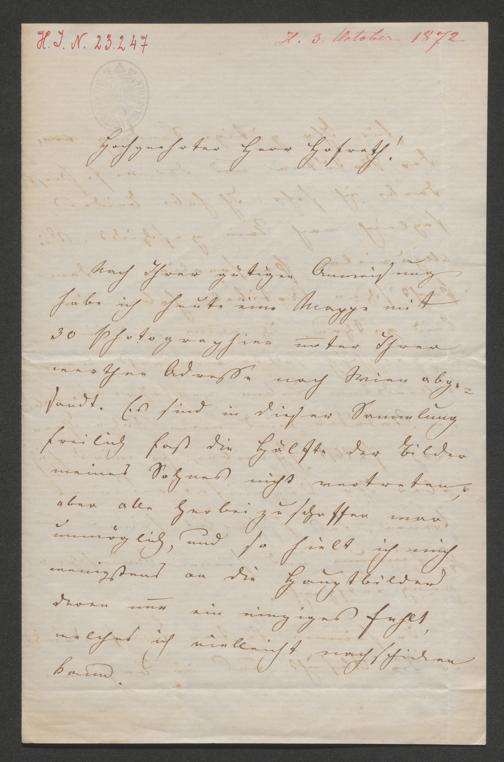 H. I. N. 23.247
H. 3. October 1872
Hochgeehrter Herr Hofrath!
Nach Ihrer gütigen Anweisung
habe ich heute eine Mappe mit
30 Photographien unter Ihrer
werthen Adresse nach Wien abge=
sandt. Es sind in dieser Sammlung
freilich fast die Hälfte der Bilder
meines Sohnes nicht vertreten,
aber alle herbeizuschaffen war
unmöglich, und so hielt ich mich
wenigstens an die Hauptbilder
deren nur ein einziges fehlt,
welches ich vielleicht nachschicken
kann.